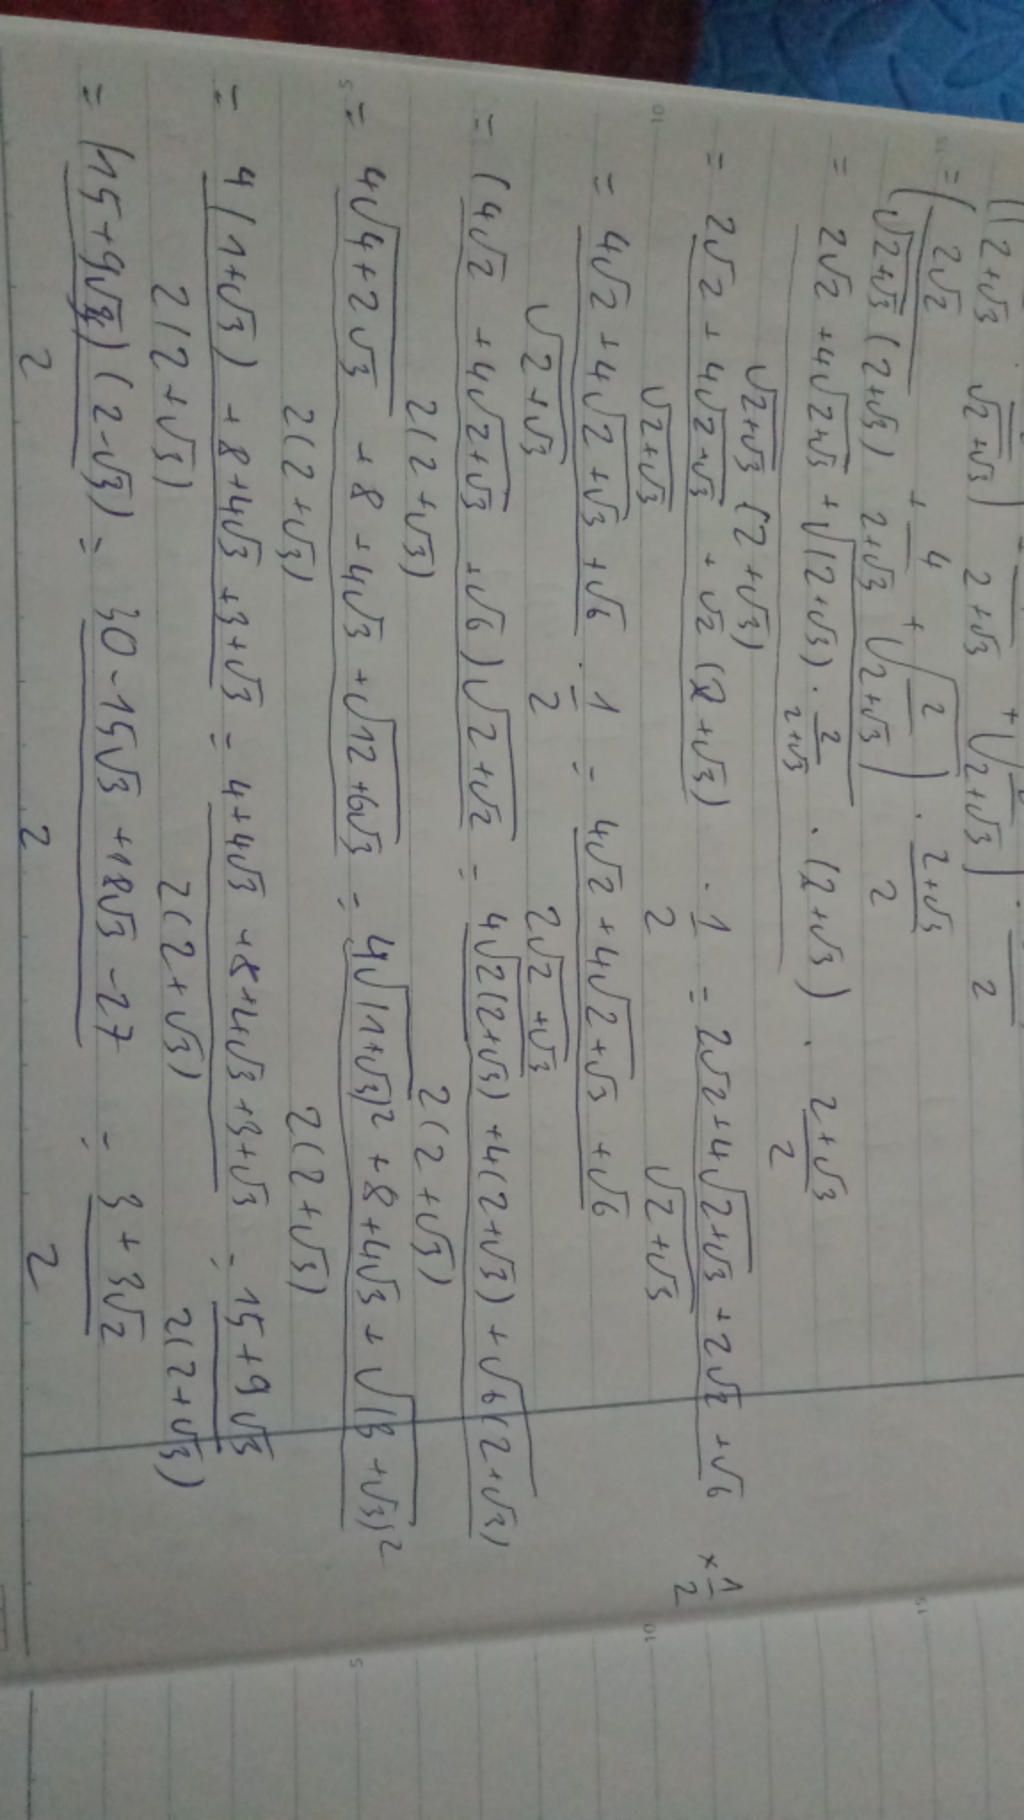 ((2+√3 · √(2+√3)) 2+√3 + √(2+√3)) · 2
= (2√2 / (√(2+√3) (2+√3)) + 4 / (2+√3) + √(2 / (2+√3))) · (2+√3) / 2
= (2√2 + 4√(2+√3) + √((2+√3) · 2/(2+√3))) / (√(2+√3) (2+√3)) · (2+√3) · (2+√3) / 2
= (2√2 + 4√(2+√3) + √2 (2+√3)) / √(2+√3) · 1/2 = (2√2 + 4√(2+√3) + 2√2 + √6) / √(2+√3) × 1/2
= (4√2 + 4√(2+√3) + √6) / √(2+√3) · 1/2 = (4√2 + 4√(2+√3) + √6) / 2√(2+√3)
= (4√2 + 4√(2+√3) + √6) √(2+√2) / 2(2+√3) = (4√(2(2+√3)) + 4(2+√3) + √(6(2+√3))) / 2(2+√3)
= (4√(4+2√3) + 8 + 4√3 + √(12+6√3)) / 2(2+√3) = (4√((1+√3)²) + 8 + 4√3 + √((3+√3)²)) / 2(2+√3)
= (4(1+√3) + 8 + 4√3 + 3 + √3) / 2(2+√3) = (4 + 4√3 + 8 + 4√3 + 3 + √3) / 2(2+√3) = (15 + 9√3) / 2(2+√3)
= (15 + 9√3)(2-√3) / 2 = (30 - 15√3 + 18√3 - 27) / 2 = (3 + 3√2) / 2